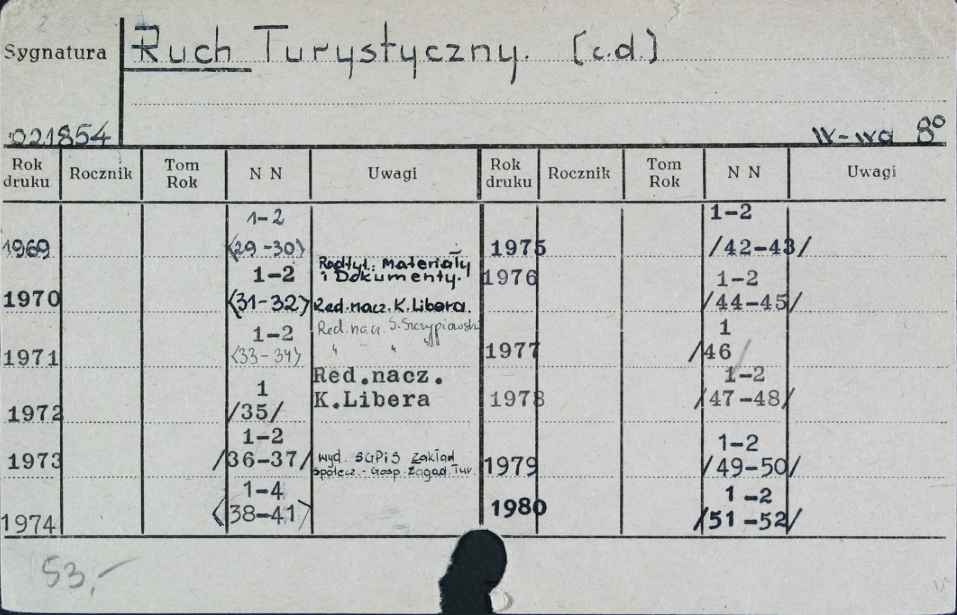 Sygnatura
Ruch Turystyczny. (c.d.)
021854
W-wa 8°
Rok druku Rocznik Tom Rok N N Uwagi Rok druku Rocznik Tom Rok N N Uwagi
1969 1-2 (29-30)
1970 1-2 (31-32) Podtyt.: Materiały i Dokumenty. Red. nacz. K. Libera.
1971 1-2 (33-34) Red. nacz. S.
1972 1 /35/ Red.nacz. K.Libera
1973 1-2 /36-37/ Wyd. SGPiS Zakład Społecz.-Gosp. Zagad. Tur.
1974 1-4 (38-41)
1975 1-2 /42-43/
1976 1-2 /44-45/
1977 1 /46/
1978 1-2 /47-48/
1979 1-2 /49-50/
1980 1-2 /51-52/
53,-